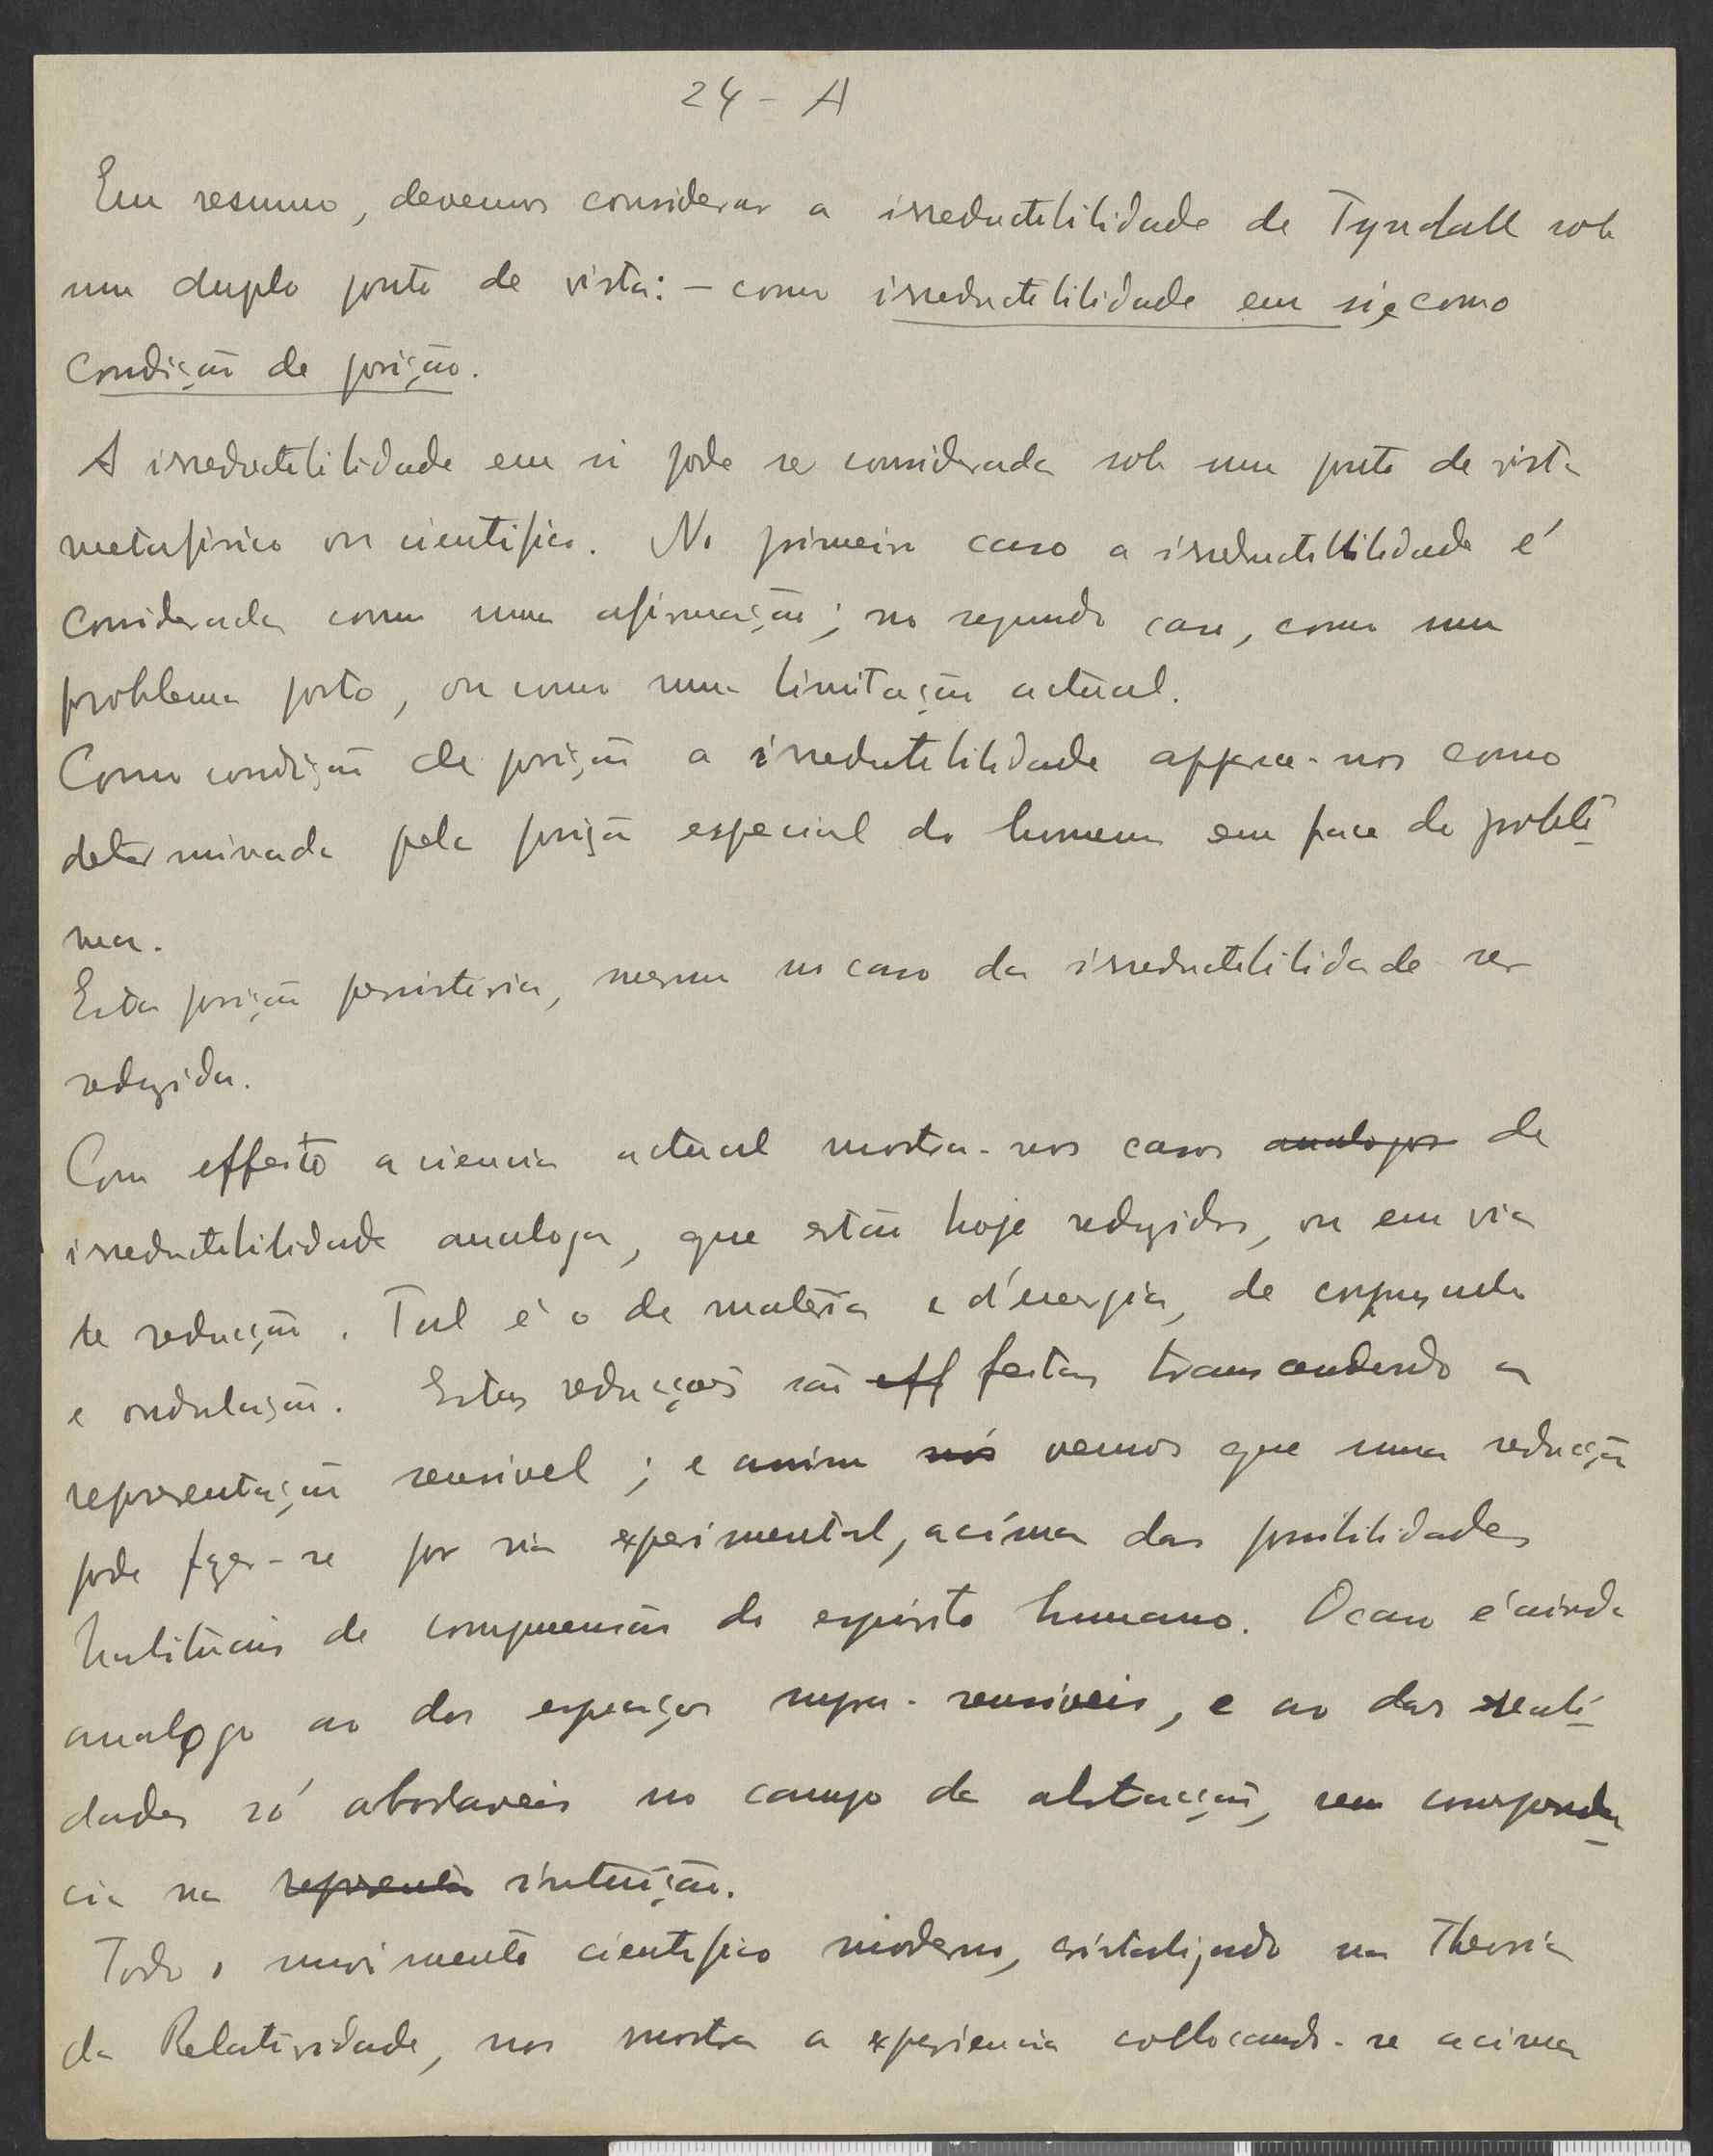 24 - A
Em resumo, devemos considerar a irreductibilidade de Tyndall sob
um duplo ponto de vista: - como irreductibilidade em si, e como
condição de posição.
A irreductibilidade em si pode ser considerada sob um ponto de vista
metafisico ou cientifico. No primeiro caso a irreductibilidade é
considerada como uma afirmação; no segundo caso, como um
problema posto, ou como uma limitação actual.
Como condição de posição a irreductibilidade apparece-nos como
determinada pela posição especial do homem em face do proble-
ma.
Esta posição persistiria, mesmo no caso da irreductibilidade ser
reduzida.
Com effeito a ciencia actual mostra-nos casos analogos de
irreductibilidade analoga, que estão hoje reduzidos, ou em via
de reducção. Tal é o de materia e d'energia, de corpusculo
e ondulação. Estas reducções são eff feitas transcendendo a
representação sensivel; e assim nós vemos que uma reducção
pode fazer-se por via experimental, acima das possibilidades
habituais de compreensão do espirito humano. O caso é ainda
analogo ao dos espaços supra-sensiveis, e ao das reali-
dades só abordaveis no campo da abstracção, sem corresponden-
cia na representa intuição.
Todo o movimento cientifico moderno, cristalizado na Theoria
da Relatividade, nos mostra a experiencia collocando-se acima